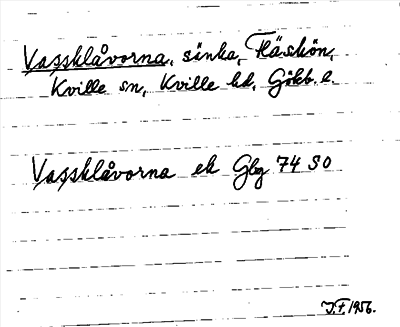 Vassklåvorna, sänka, Fläskön,
Kville sn, Kville hd, Gökb. l.
Vassklåvorna ek Gbg 74 SO
J.F. 1956.